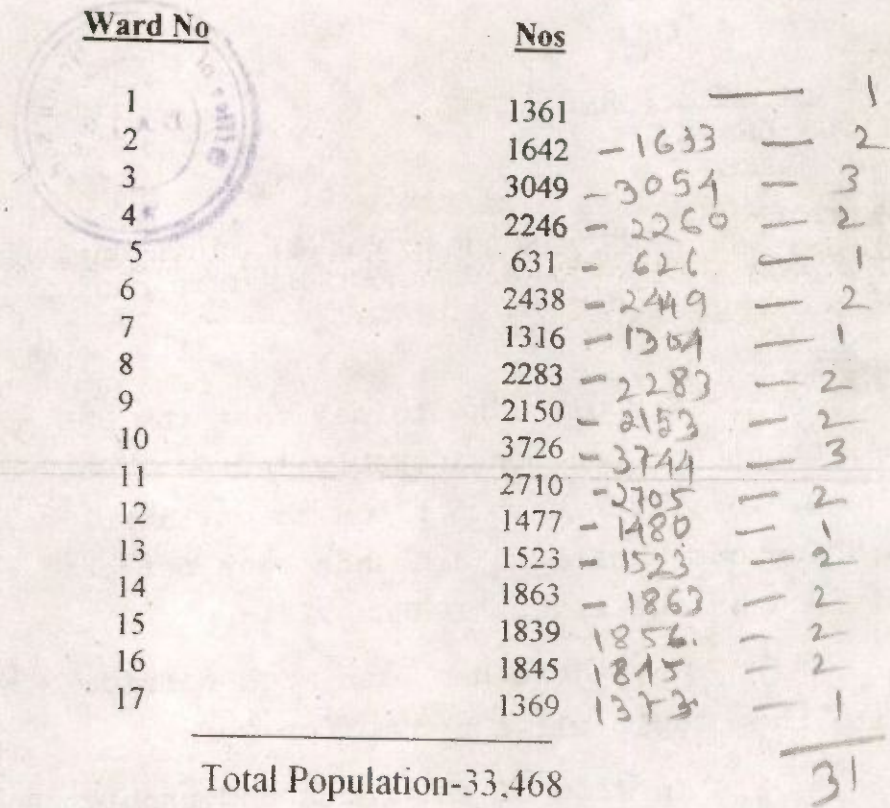 Ward No Nos
1 1361 — 1
2 1642 - 1633 — 2
3 3049 - 3054 — 3
4 2246 - 2260 — 2
5 631 - 626 — 1
6 2438 - 2449 — 2
7 1316 - 1304 — 1
8 2283 - 2283 — 2
9 2150 - 2153 — 2
10 3726 - 3744 — 3
11 2710 - 2705 — 2
12 1477 - 1480 — 1
13 1523 - 1523 — 2
14 1863 - 1863 — 2
15 1839 1856. — 2
16 1845 1845 — 2
17 1369 1373 — 1
Total Population-33,468 31